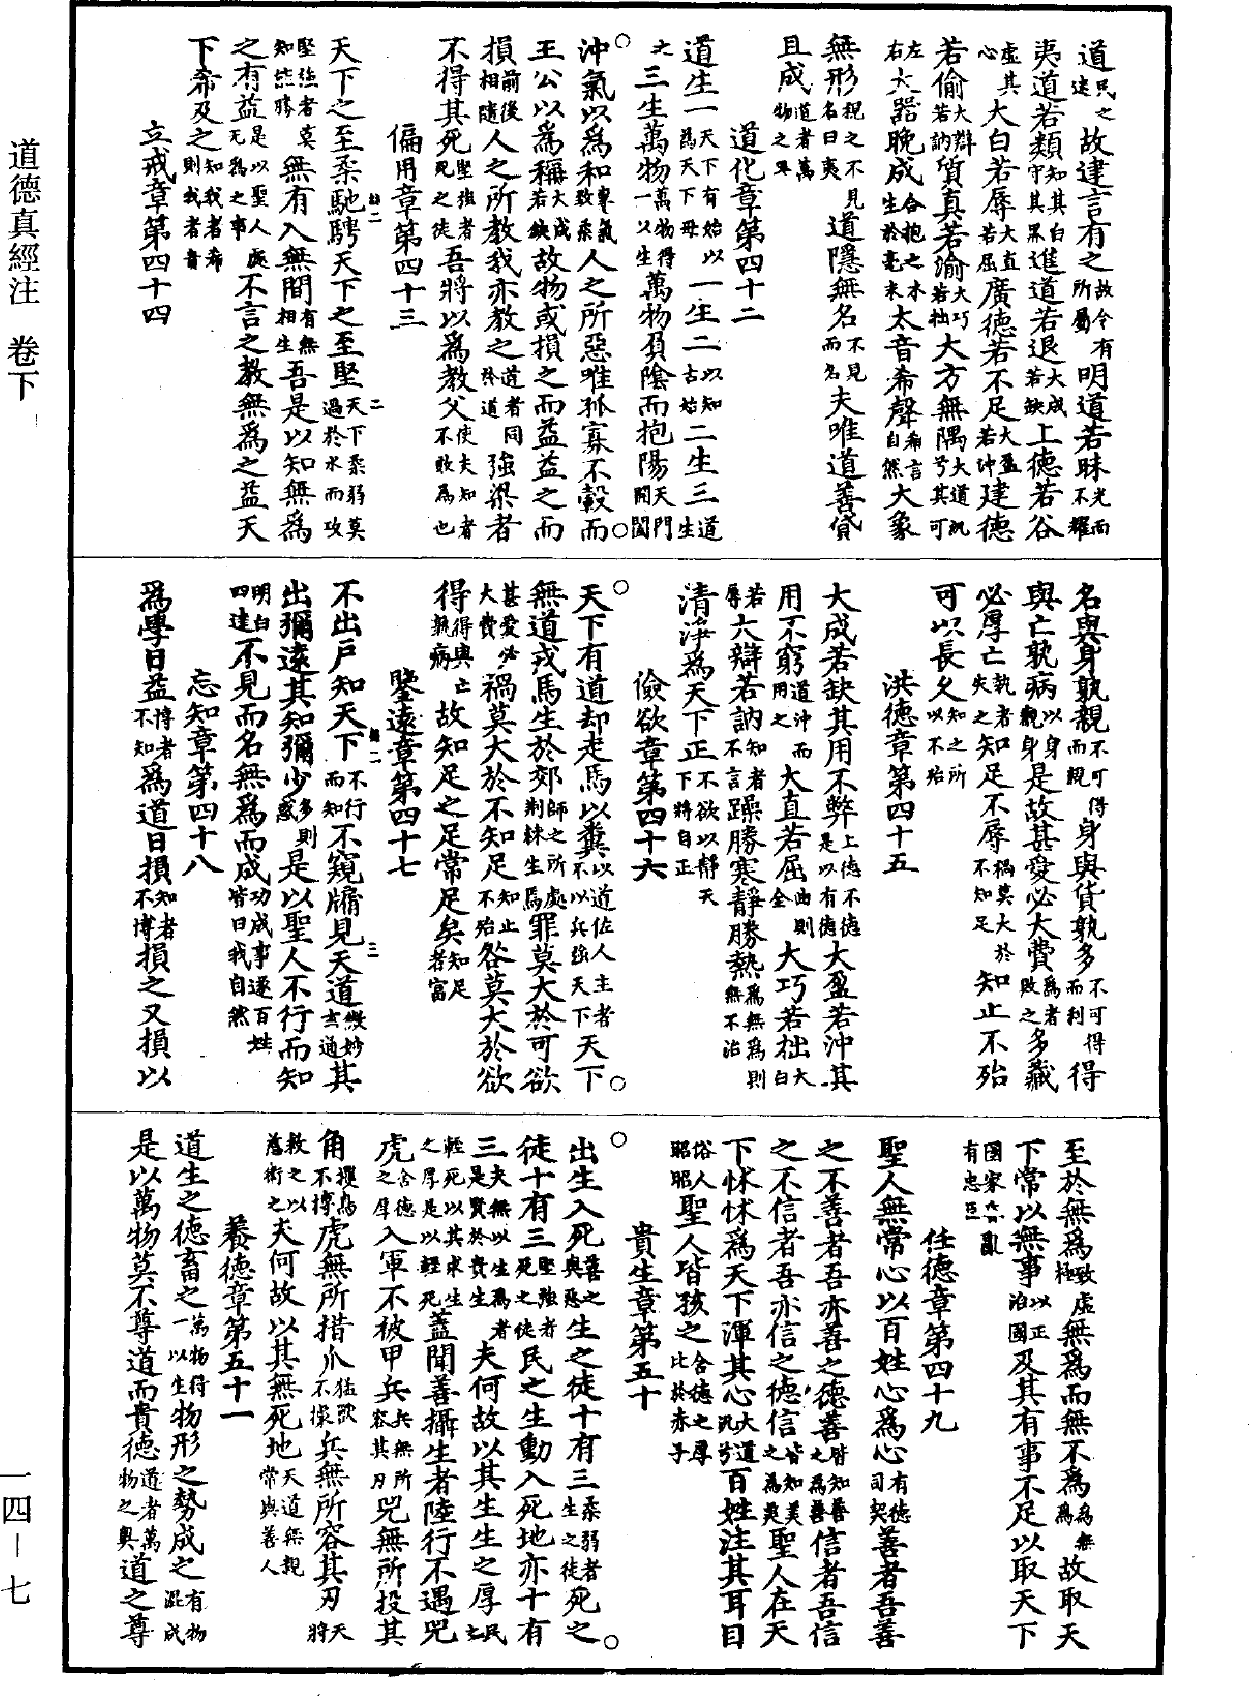 道德真經注　卷下
一四—七
道民之違故建言有之故今有所屬明道若昧光而不耀
夷道若類知其白守其黑進道若退大成若缺上德若谷
虛其心大白若辱大直若屈廣德若不足大盈若沖建德
若偷大辯若訥質真若渝大巧若拙大方無隅大道汎兮其可
左右大器晚成合抱之木生於毫末太音希聲希言自然大象
無形視之不見名曰夷道隱無名不見而名夫唯道善貸
且成道者萬物之奧
道化章第四十二
道生一天下有始以爲天下母一生二以知古始二生三道生
之三生萬物萬物得一以生萬物負陰而抱陽天門開闔
沖氣以爲和專氣致柔人之所惡唯孤寡不轂而
王公以爲稱大成若缺故物或損之而益益之而
損前後相隨人之所教我亦教之道者同於道強梁者
不得其死堅強者死之徒吾將以爲教父使夫知者不敢爲也
偏用章第四十三
天下之至柔馳騁天下之至堅天下柔弱莫過於水而攻
堅強者莫知能勝無有入無間有無相生吾是以知無爲
之有益是以聖人處无爲之事不言之教無爲之益天
下希及之知我者希則我者貴
立戒章第四十四
名與身孰親不可得而親身與貨孰多不可得而利得
與亡孰病以身觀身是故甚愛必大費爲者敗之多藏
必厚亡執者失之知足不辱禍莫大於不知足知止不殆
可以長久知之所以不殆
洪德章第四十五
大成若缺其用不弊上德不德是以有德大盈若沖其
用不窮道沖而用之大直若屈曲則全大巧若拙大白
若辱大辯若訥知者不言躁勝寒靜勝熱爲無爲則無不治
清淨爲天下正不欲以靜天下將自正
儉欲章第四十六
天下有道却走馬以糞以道佐人主者不以兵強天下天下
無道戎馬生於郊師之所處荆棘生焉罪莫大於可欲
甚愛必大費禍莫大於不知足知止不殆咎莫大於欲
得得與亡孰病故知足之足常足矣知足者富
鑒遠章第四十七
不出戶知天下不行而知不窺牖見天道微妙玄通其
出彌遠其知彌少多則惑是以聖人不行而知
明白四達不見而名無爲而成功成事遂百姓皆曰我自然
忘知章第四十八
爲學日益博者不知爲道日損知者不博損之又損以
至於無爲致虛極無爲而無不爲爲無爲故取天
下常以無事以正治國及其有事不足以取天下
國家昬亂有忠臣
任德章第四十九
聖人無常心以百姓心爲心有德司契善者吾善
之不善者吾亦善之德善皆知善之爲善信者吾信
之不信者吾亦信之德信皆知美之爲美聖人在天
下怵怵爲天下渾其心大道汎兮百姓注其耳目
俗人昭昭聖人皆孩之含德之厚比於赤子
貴生章第五十
出生入死善之與惡生之徒十有三柔弱者生之徒死之
徒十有三堅強者死之徒民之生動入死地亦十有
三夫無以生爲者是賢於貴生夫何故以其生生之厚民之
輕死以其求生之厚是以輕死蓋聞善攝生者陸行不遇兕
虎含德之厚入軍不被甲兵兵無所容其刃兕無所投其
角攫鳥不搏虎無所措爪猛獸不據兵無所容其刃天將
救之以慈衛之夫何故以其無死地天道無親常與善人
養德章第五十一
道生之德畜之萬物得一以生物形之勢成之有物混成
是以萬物莫不尊道而貴德道者萬物之奧道之尊